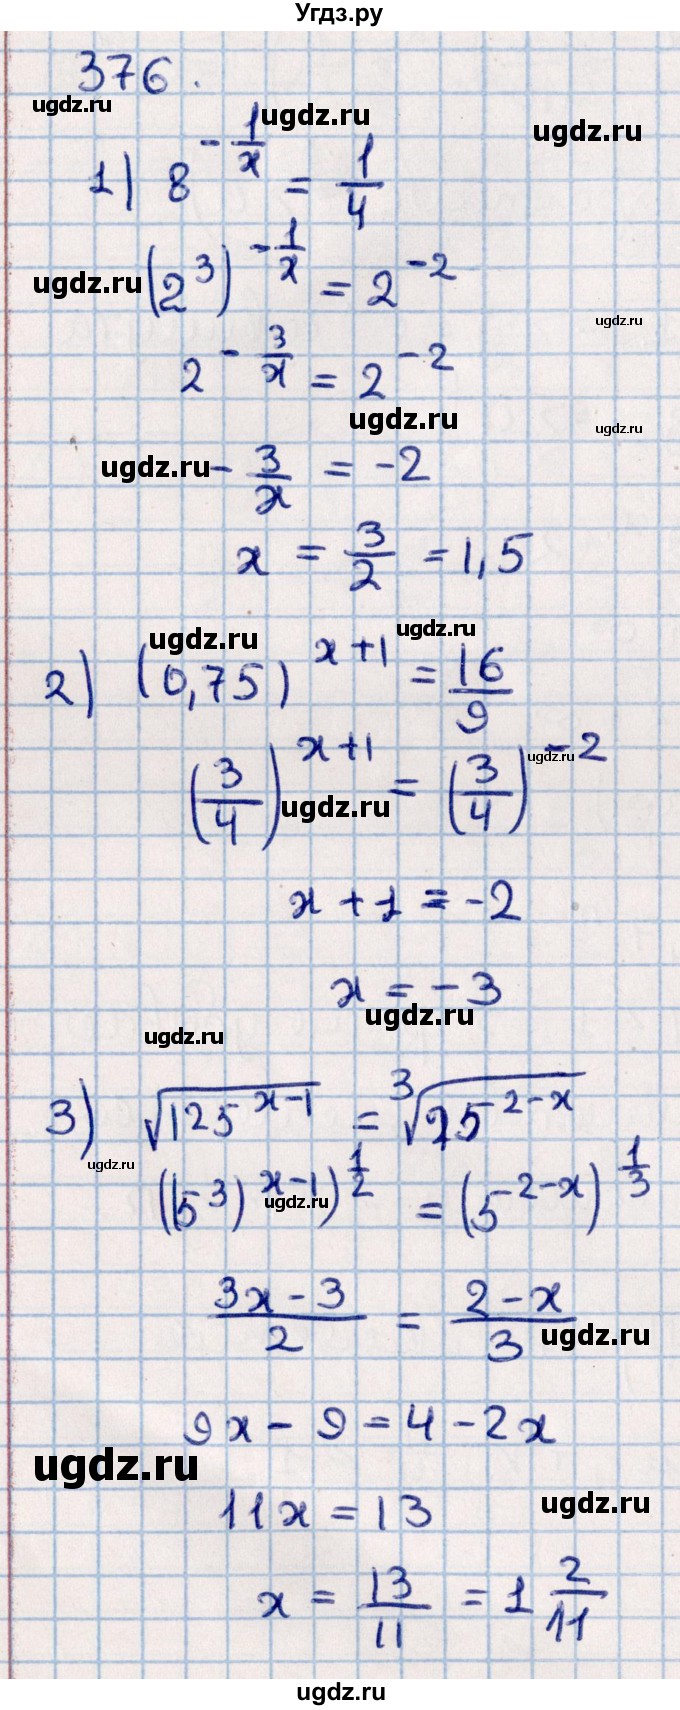 Угдз.ру
376.
ugdz.ru
ugdz.ru
ugdz.ru
1) 8^(-1/x) = 1/4
ugdz.ru
(2^3)^(-1/x) = 2^(-2)
ugdz.ru
2^(-3/x) = 2^(-2)
ugdz.ru
ugdz.ru
ugdz.ru
-3/x = -2
x = 3/2 = 1,5
ugdz.ru
ugdz.ru
2) (0,75)^(x+1) = 16/9
ugdz.ru
(3/4)^(x+1) = (3/4)^(-2)
ugdz.ru
x + 1 = -2
x = -3
ugdz.ru
ugdz.ru
3) √(125^(x-1)) = ∛(25^(2-x))
ugdz.ru
((5^3)^(x-1))^(1/2) = (5^(2-x))^(1/3)
ugdz.ru
(3x-3)/2 = (2-x)/3
ugdz.ru
9x - 9 = 4 - 2x
ugdz.ru
11x = 13
ugdz.ru
x = 13/11 = 1 2/11
ugdz.ru